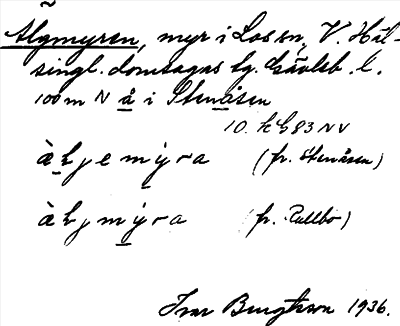 Älgmyren, myr i Los sn, V. Häl-
singl. domsagas tg. Gävleb. l.
100 m N å i Stenåsen
10. h G 83 NV
àḷjemỳra (fr. Stenåsen)
àḷjmỳra (fr. Tallbo)
Ivar Bengtsson 1936.